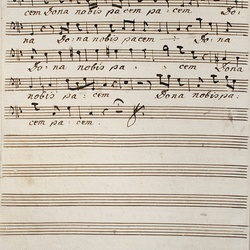 cem Dona nobis pacem pa: cem. Do:
na Do: na nobis pacem Do: na
Do: na nobis pa: cem Dona
nobis pa: cem Dona nobis pa:
cem pa: cem.